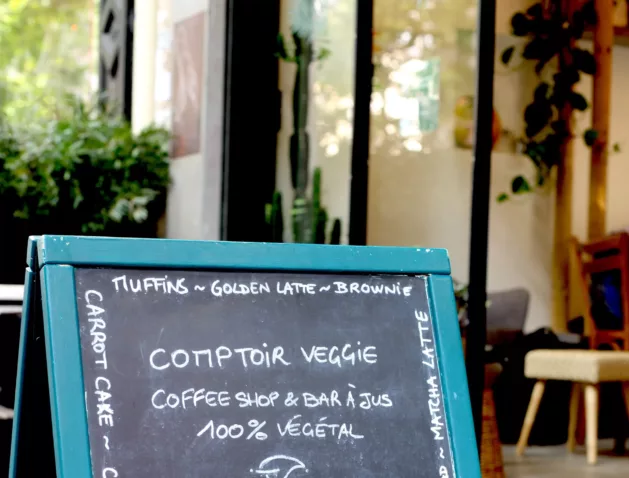 MUFFINS ~ GOLDEN LATTE ~ BROWNIE
CARROT CAKE ~
COMPTOIR VEGGIE
COFFEE SHOP & BAR À JUS
100% VÉGÉTAL
~ MATCHA LATTE